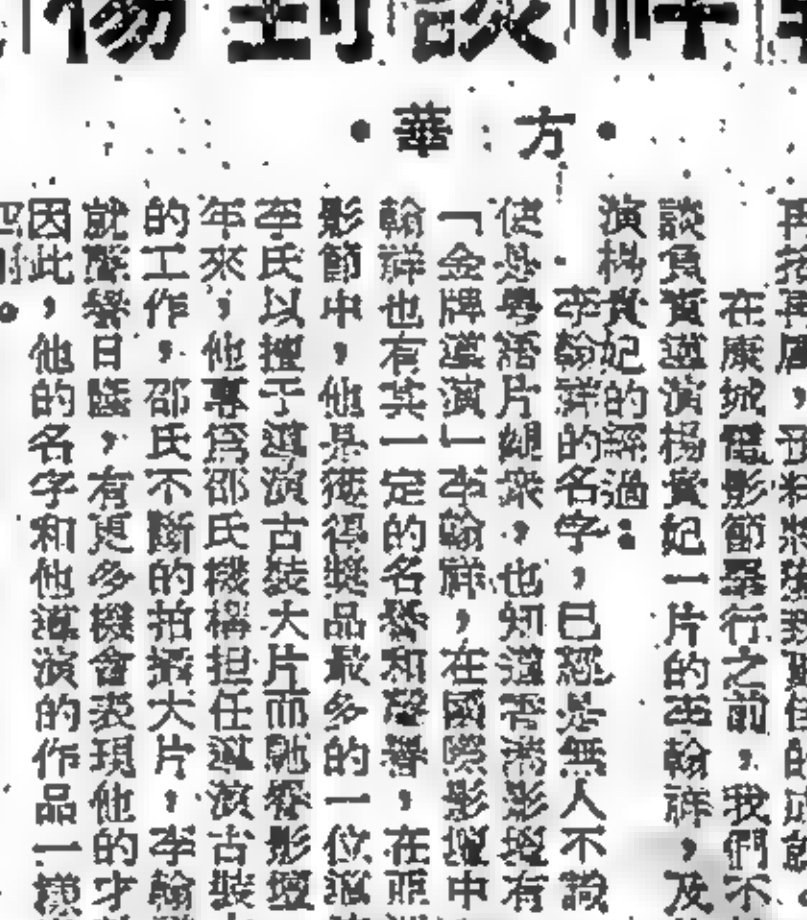 方華
在康城電影節舉行之前，我們不
談負責導演楊貴妃一片的李翰祥，及
演楊貴妃的經過：
李翰祥的名字，已經是無人不識
使是粵語片觀眾，也知道香港影壇有
「金牌導演」李翰祥，在國際影壇中
翰祥也有其一定的名譽和聲譽，在亞
影節中，他是獲得獎品最多的一位導
李氏以擅于導演古裝大片而馳譽影壇
年來，他專爲邵氏機構担任導演古裝
的工作，邵氏不斷的拍攝大片，李翰
就聲譽日隆，有更多機會表現他的才
因此，他的名字和他導演的作品一樣